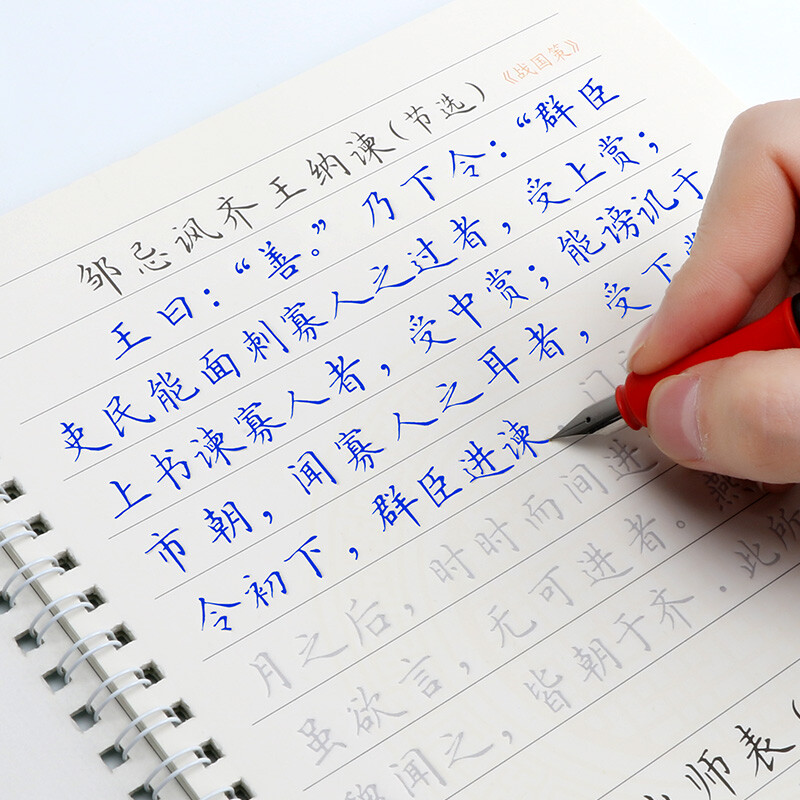 《战国策》
邹忌讽齐王纳谏(节选)
王曰：“善。”乃下令：“群臣
吏民能面刺寡人之过者，受上赏；
上书谏寡人者，受中赏；能谤讥于
市朝，闻寡人之耳者，受下赏
令初下，群臣进谏，门
月之后，时时而间进
虽欲言，无可进者。燕
魏闻之，皆朝于齐．此所
师表(